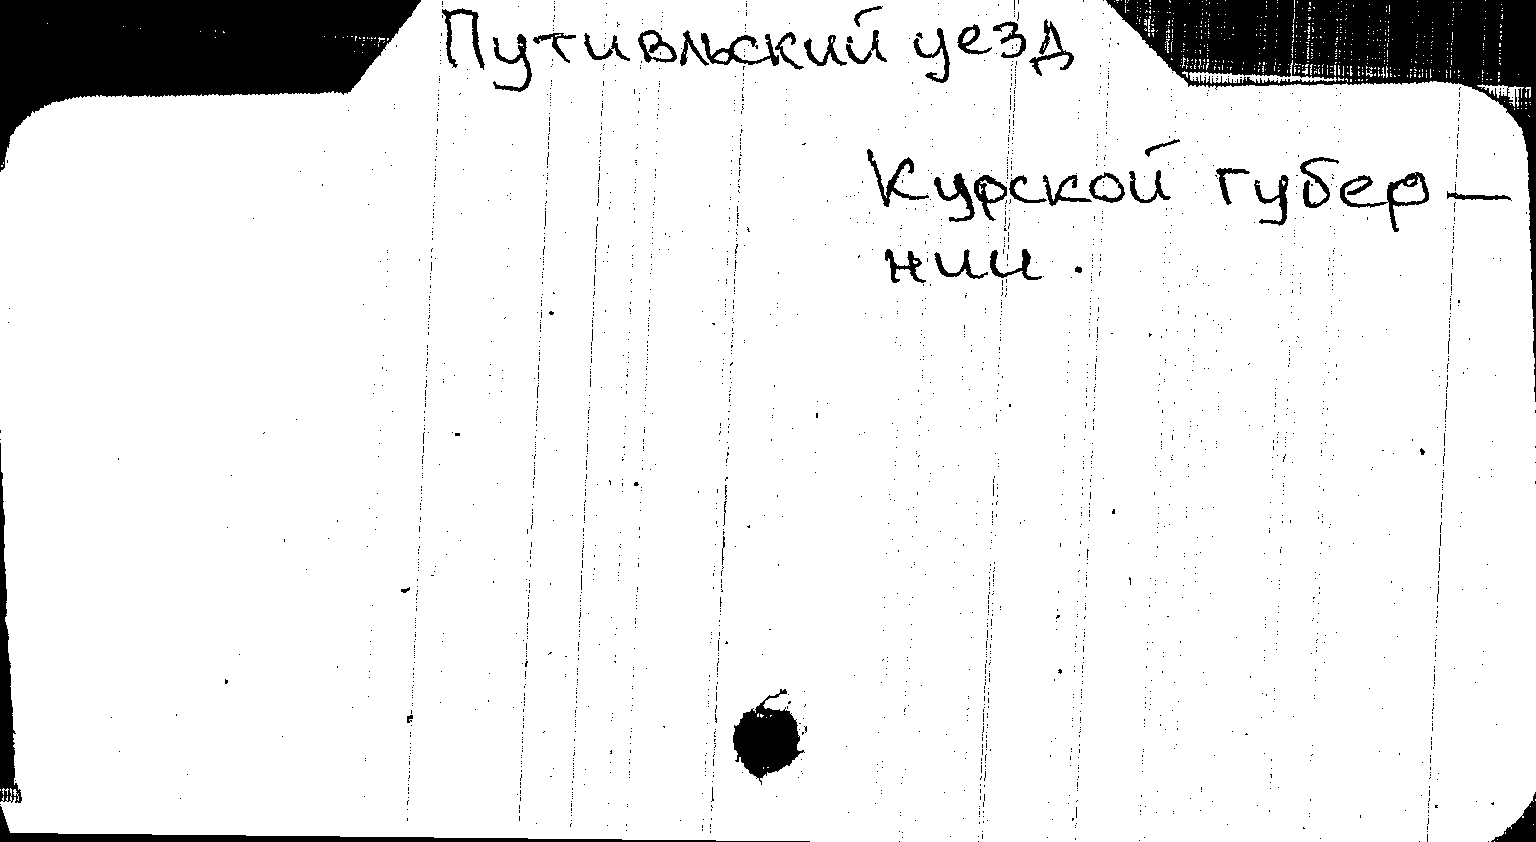 Путивльский уезд
Курской губер —
нии.